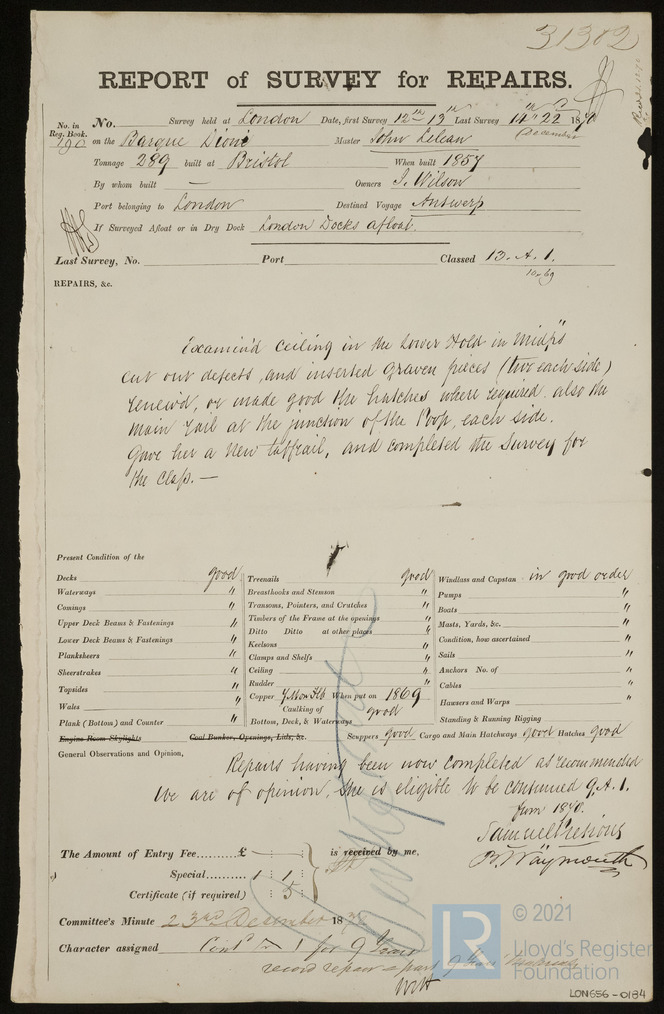 31302
REPORT of SURVEY for REPAIRS.
No. in Reg. Book.
No. Survey held at London Date, first Survey 12th 13th Last Survey 14th 22 1870
December
190 on the Barque Dione Master John Lelean
Tonnage 289 built at Bristol When built 1857
By whom built — Owners J. Wilson
Port belonging to London Destined Voyage Antwerp
If Surveyed Afloat or in Dry Dock London Docks afloat.
Last Survey, No. Port Classed 13. A. 1.
10.69
REPAIRS, &c.
Examin'd Ceiling in the Lower Hold in Midps
cut out defects, and inserted graven pieces (two each side)
renew'd, or made good the hatches where required. also the
main rail at the junction of the Poop, each side.
Gave her a New taffrail, and completed the Survey for
the Class. —
Present Condition of the
Decks good Treenails good Windlass and Capstan in good order
Waterways " Breasthooks and Stemson " Pumps "
Comings " Transoms, Pointers, and Crutches " Boats "
Upper Deck Beams & Fastenings " Timbers of the Frame at the openings " Masts, Yards, &c. "
Lower Deck Beams & Fastenings " Ditto Ditto at other places " Condition, how ascertained "
Planksheers " Keelsons " Sails "
Sheerstrakes " Clamps and Shelfs " Anchors No. of "
Topsides " Ceiling " Cables "
Wales " Rudder " Hawsers and Warps "
Copper When put on 1869
Plank (Bottom) and Counter " Caulking of Bottom, Deck, & Waterways good Standing & Running Rigging
Engine Room Skylights Coal Bunker, Openings, Lids, &c. Scuppers good Cargo and Main Hatchways good Hatches good
General Observations and Opinion,
Repairs having been now completed as recommended
We are of opinion, She is eligible to be continued 9. A. 1.
from 1870.
Samuel Pretious
B. Waymouth
The Amount of Entry Fee.......... £ : : is received by me,
Special .......... 1 : 1 :
Certificate (if required) : 5 :
Committee's Minute 23rd December 1870
Character assigned Contd A 1 for 9 Years
record repair
© 2021
LR
Lloyd's Register
Foundation
LON656-0184